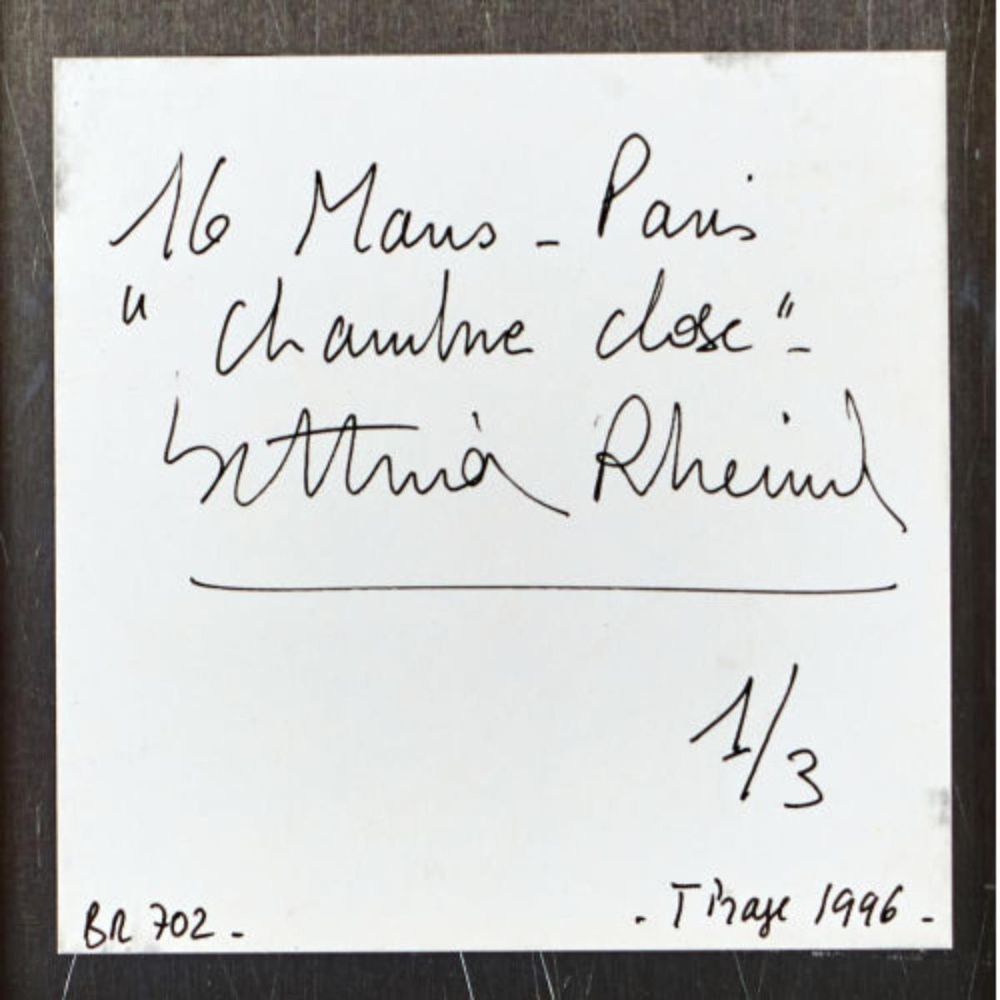 16 Mars - Paris
"Chambre close" -
Bettina Rheims
1/3
BR 702 -
- Tirage 1996 -